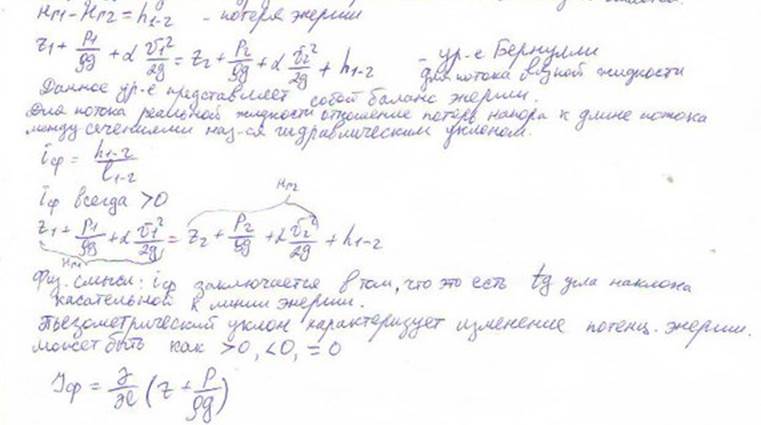 Hг1-Hг2 = h1-2 - потеря энергии
z1 + P1/ρg + α v1²/2g = z2 + P2/ρg + α v2²/2g + h1-2 - ур-е Бернулли
для потока вязкой жидкости
Данное ур-е представляет собой баланс энергии.
Для потока реальной жидкости отношение потерь напора к длине потока
между сечениями наз-ся гидравлическим уклоном.
iф = h1-2/l1-2
iф всегда >0
Hг2
z1 + P1/ρg + α v1²/2g = z2 + P2/ρg + α v2²/2g + h1-2
Hг1
Физ. смысл: iф заключается в том, что это есть tg угла наклона
касательной к линии энергии.
Пьезометрический уклон характеризует изменение потенц. энергии.
может быть как >0, <0, =0
Jф = ∂/∂l (z + P/ρg)